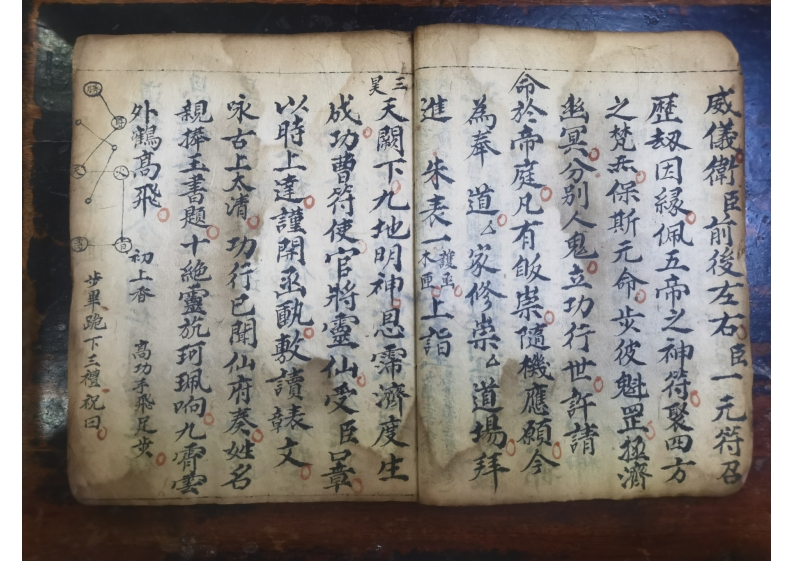 威儀衛臣前後左右臣一元符召
歷劫因緣佩五帝之神符聚四方
之梵炁保斯元命步彼魁罡拯濟
幽冥分別人鬼立功行世許請
命於帝庭凡有皈崇隨機應願今
為奉 道 厶家修崇厶道場拜
進 朱表一
木匣
上詣
三
昊
天闕下九地明神恩霈濟度生
成功曹符使官將靈仙受臣口章
以時上達謹開函敷讀表文
詠古上太清功行已聞仙府奏姓名
親捧玉書題十絕靈旂珂珮响九霄雲
外鶴高飛 初上香 高功手飛足步
步畢跪下三禮祝曰